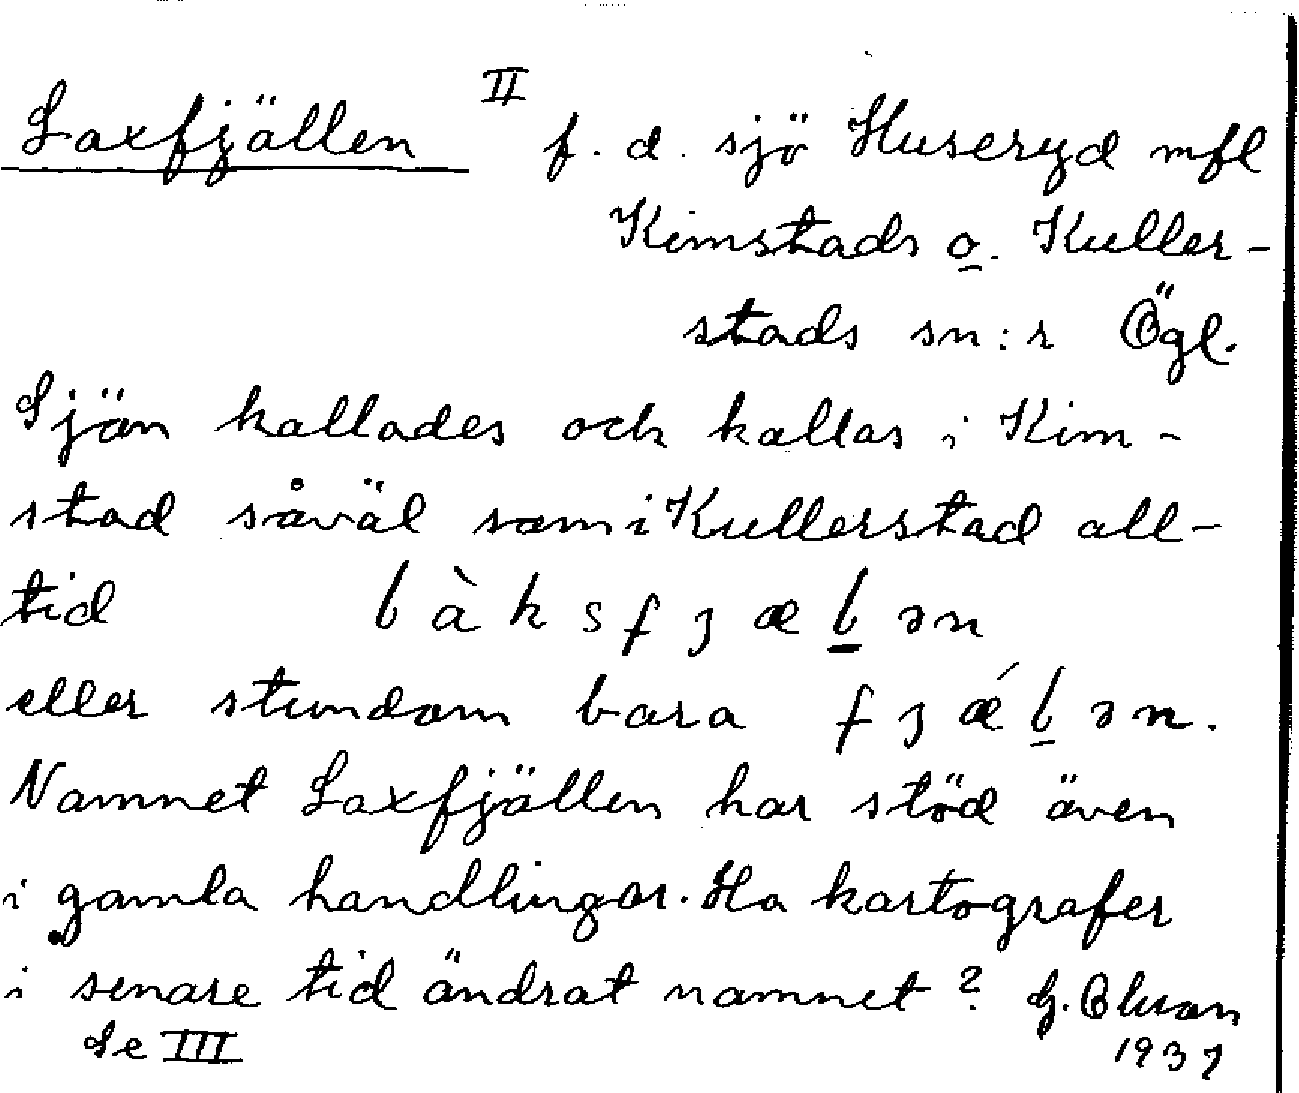 Laxfjällen II f. d. sjö Huseryd mfl
Kimstads o. Kuller-
stads sn:r Ögl.
Sjön kallades och kallas i Kim-
stad såväl som i Kullerstad all-
tid l à k s f j æ l ə n
eller stundom bara f j ǽ l ə n.
Namnet Laxfjällen har stöd även
i gamla handlingar. Ha kartografer
i senare tid ändrat namnet?
Se III
1937